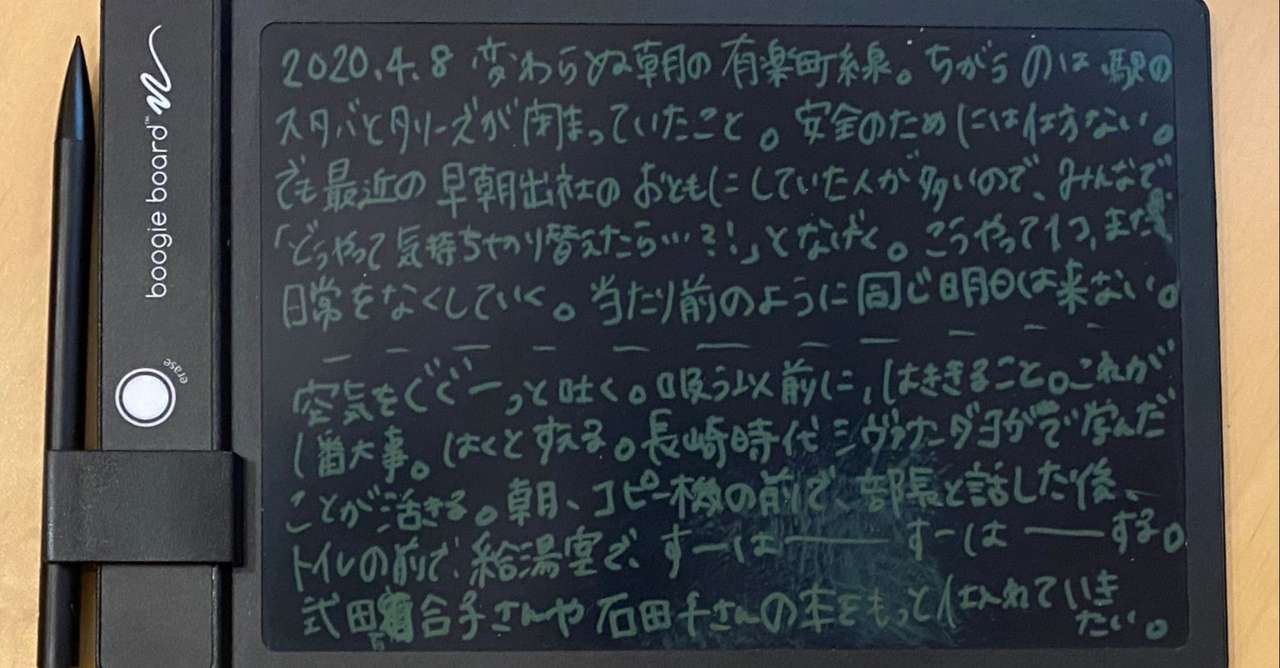 boogie board™
erase
2020.4.8 変わらぬ朝の有楽町線。ちがうのは駅の
スタバとタリーズが閉まっていたこと。安全のためには仕方ない。
でも最近の早朝出社のおともにしていた人が多いので、みんなで
「どうやって気持ちやり替えたら…?!」となげく。こうやって1つ、また
日常をなくしていく。当たり前のように同じ明日は来ない。
空気をぐぐーっと吐く。吸う以前に、はききること。これが
1番大事。はくとすえる。長崎時代シヴァナンダヨガで学んだ
ことが活きる。朝、コピー機の前で、部長と話した後、
トイレの前で、給湯室で、すーはーーすーはーーする。
武田百合子さんや石田千さんの本をもっと仕入れていき
たい。